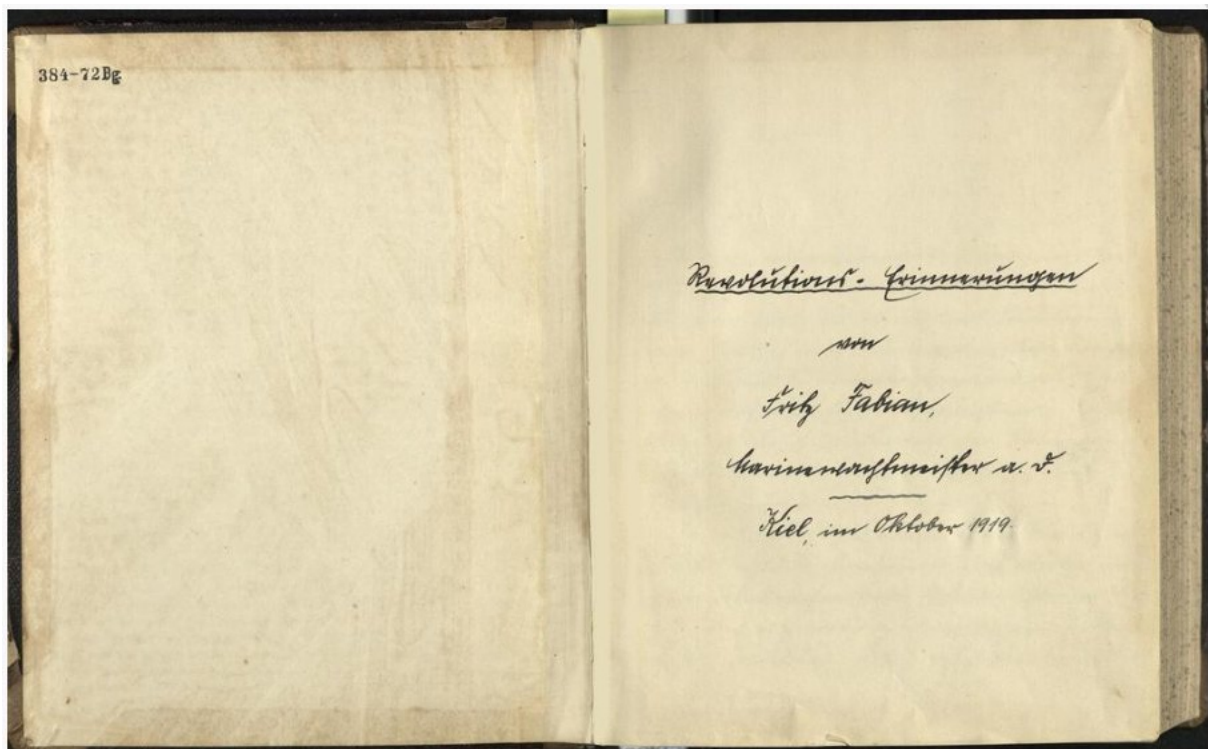 384-72Bg
Revolutions-Erinnerungen
von
Fritz Fabian,
Marinewachtmeister a. D.
Kiel, im Oktober 1919.